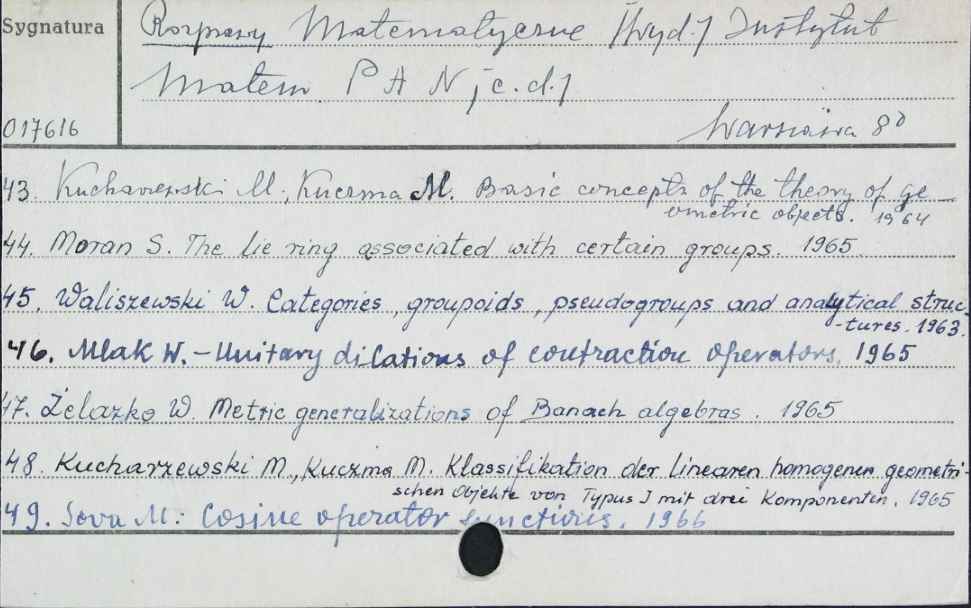 Sygnatura
Rozprawy Matematyczne /Wyd./ Instytut
Matem P A N /c.d./
017616
Warszawa 8°
43. Kucharzewski M., Kuczma M. Basic concepts of the theory of ge
ometric objects. 1964
44. Moran S. The lie ring associated with certain groups. 1965
45. Waliszewski W. Categories, groupoids, pseudogroups and analytical struc-
-tures. 1963.
46. Mlak W. - Unitary dilations of contraction operators. 1965
47. Żelazko W. Metric generalizations of Banach algebras. 1965
48. Kucharzewski M., Kuczma M. Klassifikation der linearen homogenen geometri-
schen Objekte von Typus J mit drei Komponenten. 1965
49. Sova M.: Cosine operator functions. 1966